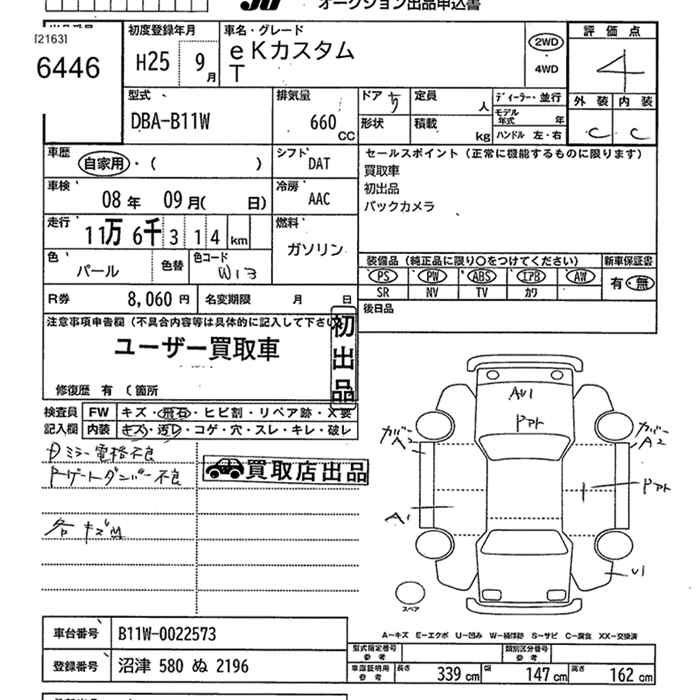 オークション出品申込書
[21631
6446
初度登録年月
H25 9月
車名・グレード
eKカスタム
T
2WD
4WD
評価点
4
外装 内装
C C
型式
DBA-B11W
排気量
660 CC
ドア 5
形状
定員 人
積載 kg
ディーラー・並行
モデル年式 年
ハンドル 左・右
車歴
自家用・( )
シフト
DAT
車検
08年 09月( 日)
冷房
AAC
走行
11万 6千 3 1 4 km
燃料
ガソリン
色
パール
色替
色コード
W13
セールスポイント (正常に機能するものに限ります)
買取車
初出品
バックカメラ
装備品 (純正品に限り○をつけてください)
PS PW ABS エアB AW
SR NV TV カワ
新車保証書
有・無
R券 8,060 円
名変期限 月 日
後日品
注意事項申告欄 (不具合内容等は具体的に記入して下さい
ユーザー買取車
修復歴 有 ( 箇所
初出品
検査員記入欄
FW キズ・飛石・ヒビ割・リペア跡・X要
内装 キズ・汚レ・コゲ・穴・スレ・キレ・破レ
ミラー電格不良
ゲートダンパー不良
買取店出品
各キズM
AU1
ドアト
カバー
A2
カバー
A2
ドアト
A1
U1
スペア
A-キズ E-エクボ U-凹み W-補修跡 S-サビ C-腐食 XX-交換済
車台番号 B11W-0022573
登録番号 沼津 580 ぬ 2196
型式指定番号 参考
類別区分番号 参考
車庫証明用 参考
長さ 339 cm
幅 147 cm
高さ 162 cm